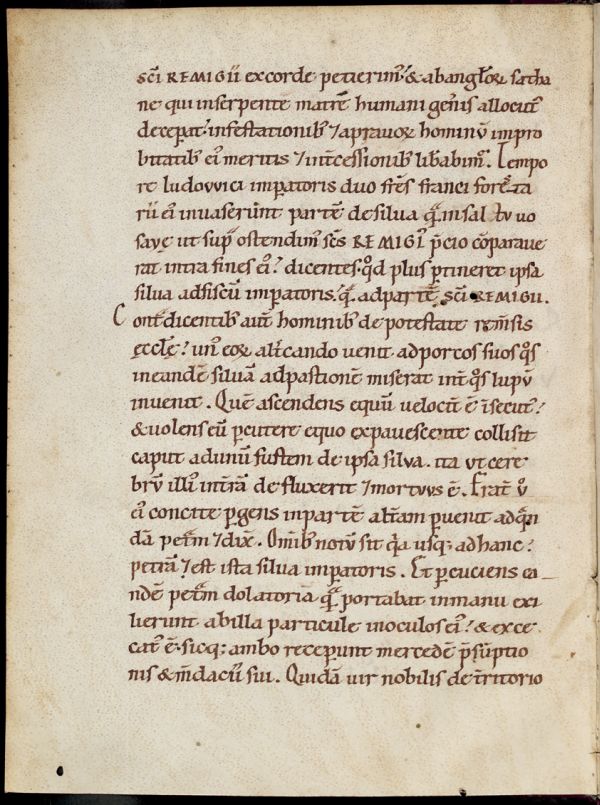 sc̄i REMIGII ex corde petierim᷒ & ab anglor̄ satha
ne qui in serpente matrē humani gen̄is allocut᷒
deceperat᷒ infestationib᷒ ⁊ a prauor̄ hominū impro
bitatib᷒ ei᷒ meritis ⁊ int̄cessionib᷒ lib̄abim᷒. Tempo
re ludovvici imp̄atoris duo fr̄s franci fore᷒ta
rii ei᷒ inuaserunt partē de silua q̄ in sal tu uo
sagę ut sup̄ ostendim᷒ sc̄s REMIGI᷒ p̄cio cōparaue
rat intra fines ei᷒ dicentes q̊d plus ꝑtineret ipsa
silua ad fiscū imperatoris᷒ q̄ ad partē sc̄i REMIGII.
Cont̄dicentib᷒ aut̄ hominib᷒ de potestate rem̄sis
ęccl̄ę᷒ un᷒ eor̄ alt̄cando uenit ad porcos suos q̊s
in eandē siluā ad pastionē miserat int̄ q̊s lupū
inuenit. Quē ascendens equū uelocit̄ ē īsecut᷒
& uolens eū ꝑcutere equo expauescente collisit
caput ad unū fustem de ipsa silua. ita ut cere
brū illi᷒ in t̄rā defluxerit ⁊ mortvvs ē. Frat̄ ů
ei᷒ concite ꝑgens in partē alt̄am ꝑuenit ad q̄n
dā pet̄m ⁊ dix̄. Om̄ib᷒ notū sit q̄a usq; ad hanc
petrā ⁊ est ista silua imperatoris. Et ꝑcuciens ea
ndē pet̄m dolatoria q̄ portabat in manu exi
lierunt ab illa particule in oculos ei᷒ & exce
cat᷒ ē. sicq; ambo receperunt mercedē p̄sūptio
nis & m̄dacii sui. Quidā uir nobilis de t̄ritorio